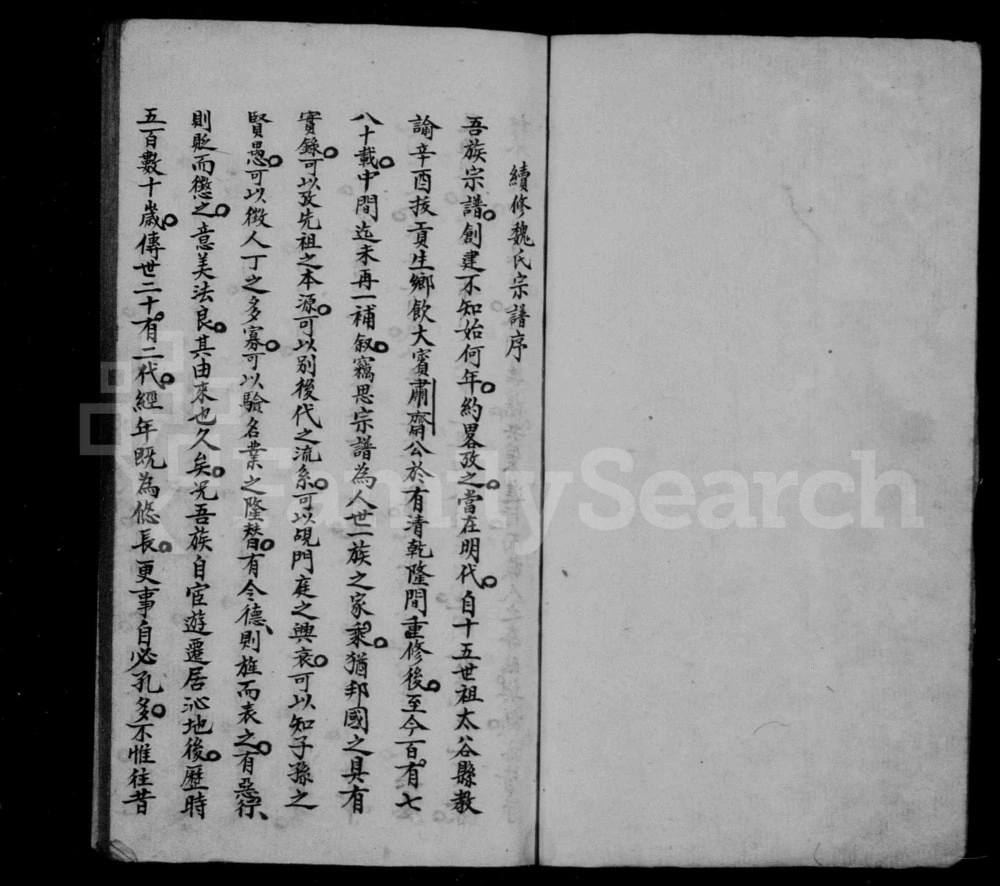 續修魏氏宗譜序
吾族宗譜。創建不知始何年。約畧攷之。當在明代。自十五世祖太谷縣教
諭辛酉拔貢生鄉飲大賓肅齋公於有清乾隆間重修後。至今一百。有七
八十載。中間迄未再一補叙。竊思宗譜為人世一族之家乘。猶邦國之具有
實錄。可以攷先祖之本源。可以別後代之流系。可以覘門庭之興衰。可以知子孫之
賢愚。可以徵人丁之多寡。可以驗名業之隆替。有令德、則旌而表之。有惡行、
則貶而懲之。意美法良。其由來也久矣。况吾族自宦遊遷居沁地後。歷時
五百數十歲。傳世二十。有二代。經年既為悠長。更事自必孔多。不惟往昔
FamilySearch